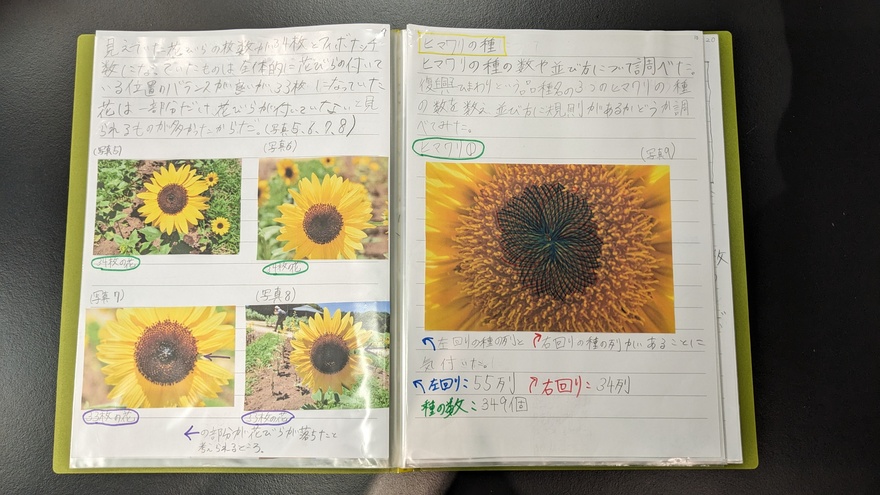 見えていた花びらの枚数が34枚とフィボナッチ
数になっていたものは全体的に花びらの付いて
いる位置のバランスが良いが、33枚になっていた
花は一部分だけ花びらが付いていないと見
られるものが多かったからだ。(写真5、6、7、8)
(写真5)
(写真6)
34枚の花
34枚の花
(写真7)
(写真8)
33枚の花
33枚の花
←の部分が花びらが落ちたと
考えられるところ。
ヒマワリの種
ヒマワリの種の数や並び方について調べた。
復興ひまわりという品種名の3つのヒマワリの種
の数を数え、並び方に規則があるかどうか調
べてみた。
ヒマワリ①
(写真9)
左回りの種の列と 右回りの種の列があることに
気付いた。
左回り:55列 右回り:34列
種の数:349個